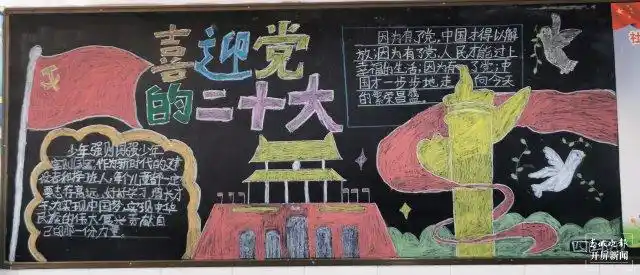 喜迎党
的二十大
因为有了党,中国才得以解
放;因为有了党,人民才能过上
幸福的生活;因为有了党;中
国才一步步地走向今天
的繁荣昌盛。
少年强则国强少年
作为新时代的建
设者和接班人,
要志存高远,好好学习,增长才
干为实现中国梦,实现中华
民族的伟大复兴贡献自
己的那一份力量
开屏新闻